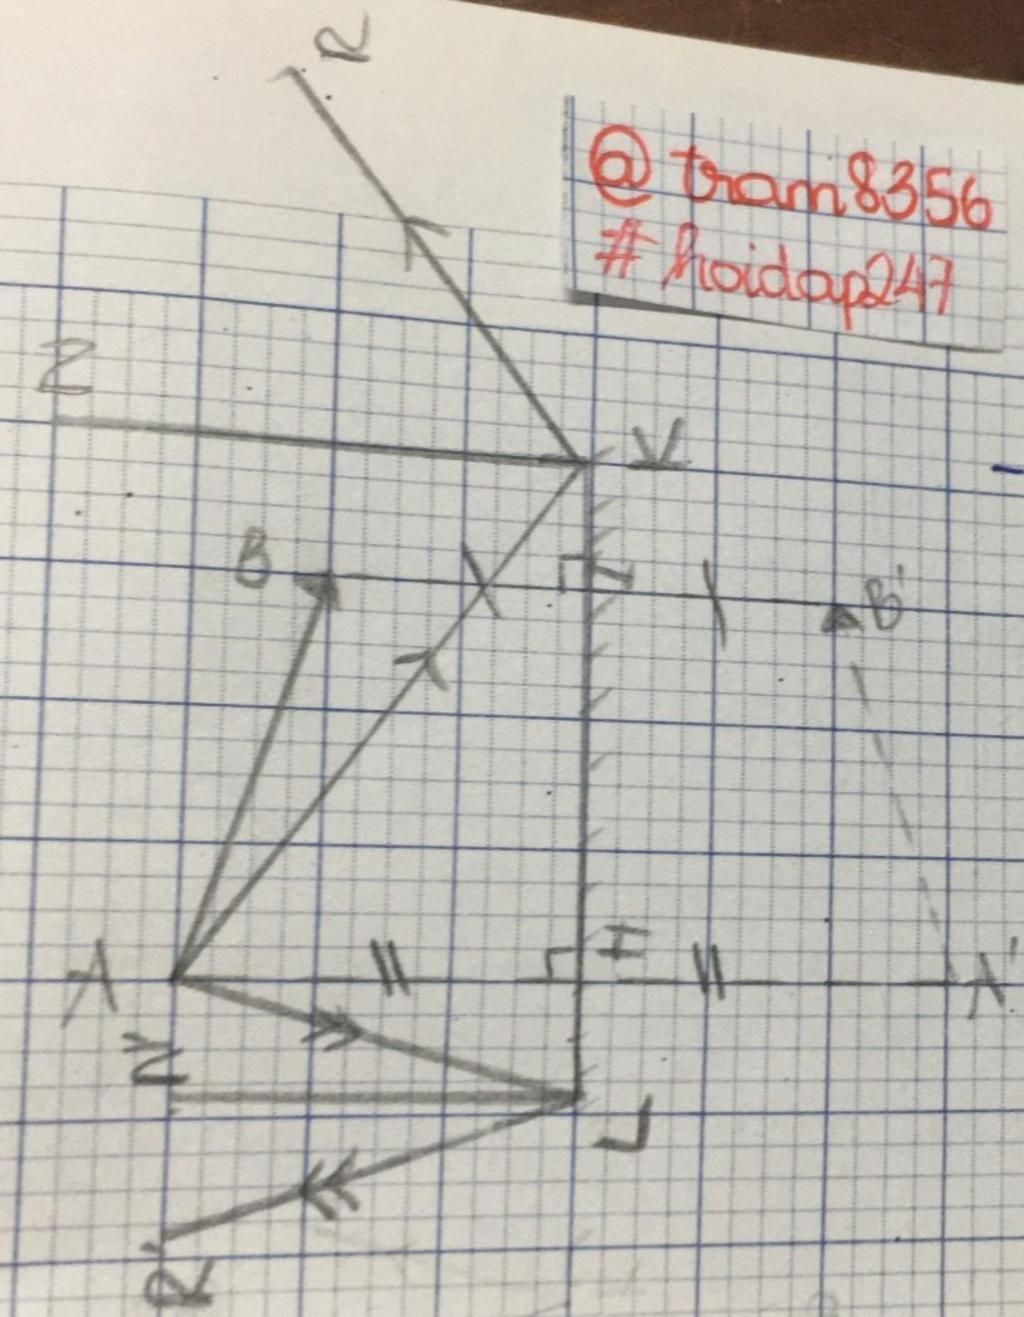 R
@ tram8356
# hoidap247
N
K
B
I
B'
A
H
A'
N'
L
R'